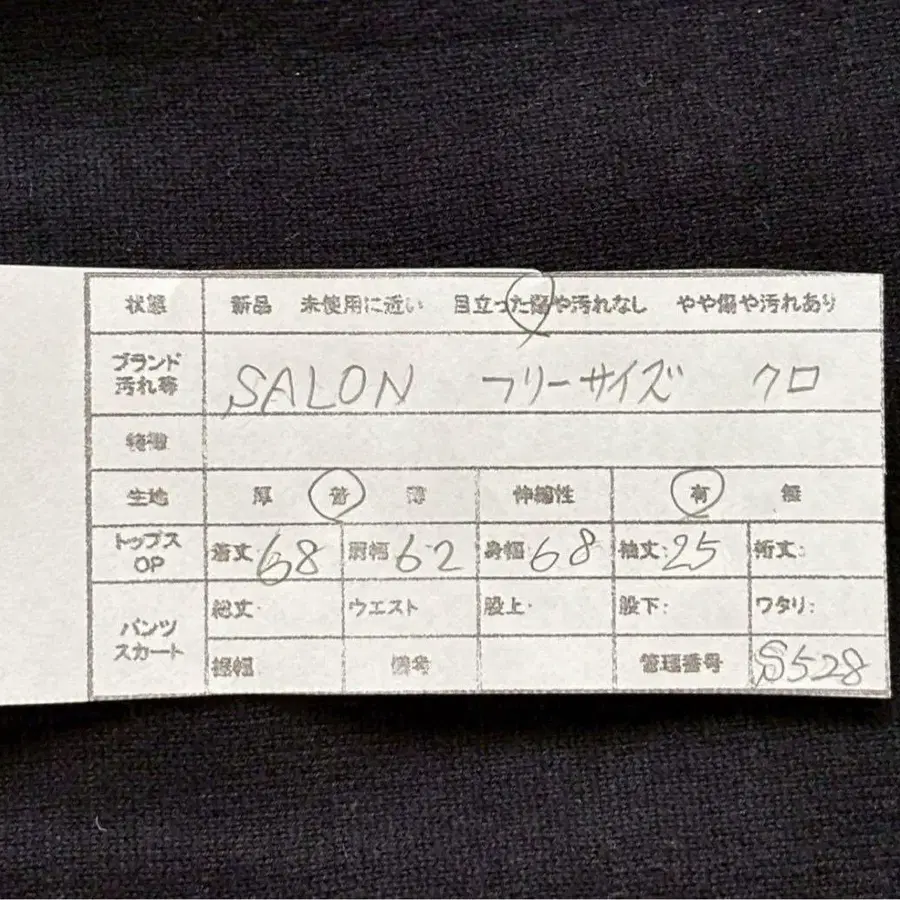 状態 新品 未使用に近い 目立った傷や汚れなし やや傷や汚れあり
ブランド 汚れ等 SALON フリーサイズ クロ
特徴
生地 厚 普 薄 伸縮性 有 無
トップス OP 着丈 68 肩幅 62 身幅 68 袖丈: 25 裄丈:
パンツ スカート 総丈 ウエスト 股上 股下: ワタリ:
裾幅 備考 管理番号 S528